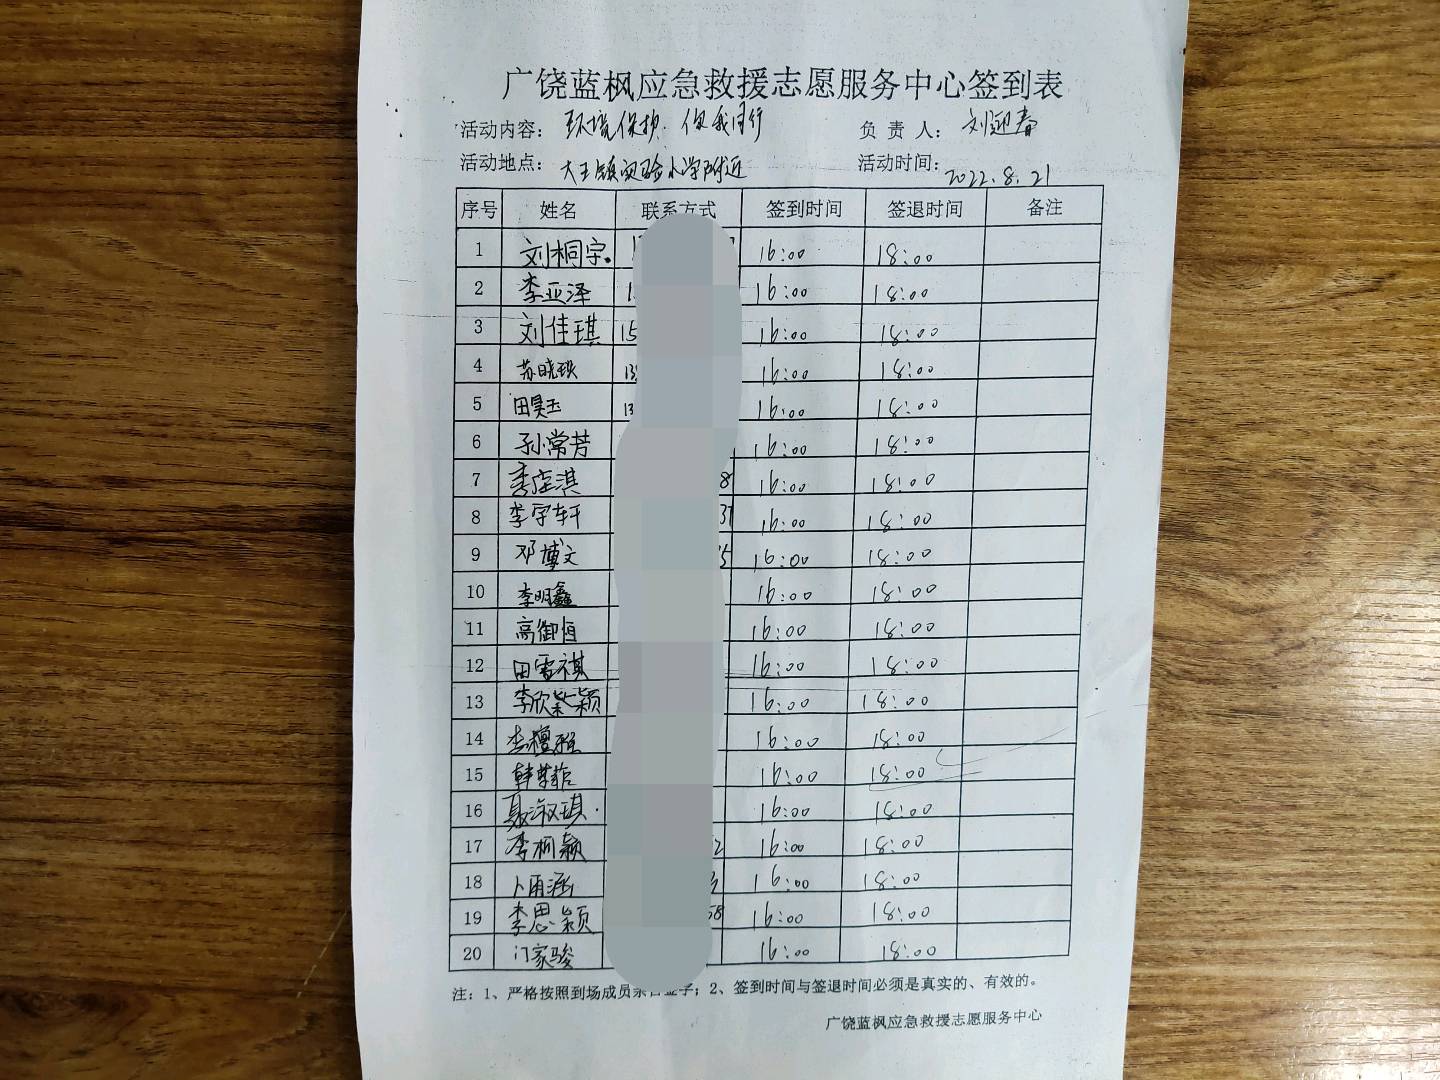 广饶蓝枫应急救援志愿服务中心签到表
活动内容： 环境保护 你我同行 负 责 人： 刘迎春
活动地点： 大王镇实验小学附近 活动时间： 2022.8.21
序号 姓名 联系方式 签到时间 签退时间 备注
1 刘桐宇 16:00 18:00
2 李亚泽 16:00 18:00
3 刘佳琪 15 16:00 18:00
4 苏晓轶 13 16:00 18:00
5 田昊玉 13 16:00 18:00
6 孙常芳 16:00 18:00
7 8 16:00 18:00
8 李宇轩 37 16:00 18:00
9 邓博文 5 16:00 18:00
10 李明鑫 16:00 18:00
11 高御恒 16:00 18:00
12 田雪祺 16:00 18:00
13 李欣紫颖 16:00 18:00
14 16:00 18:00
15 16:00 18:00
16 聂淑琪 16:00 18:00
17 李柯颖 2 16:00 18:00
18 卜雨涵 16:00 18:00
19 李思颖 58 16:00 18:00
20 门家骏 16:00 18:00
注：1、严格按照到场成员亲自签字；2、签到时间与签退时间必须是真实的、有效的。
广饶蓝枫应急救援志愿服务中心